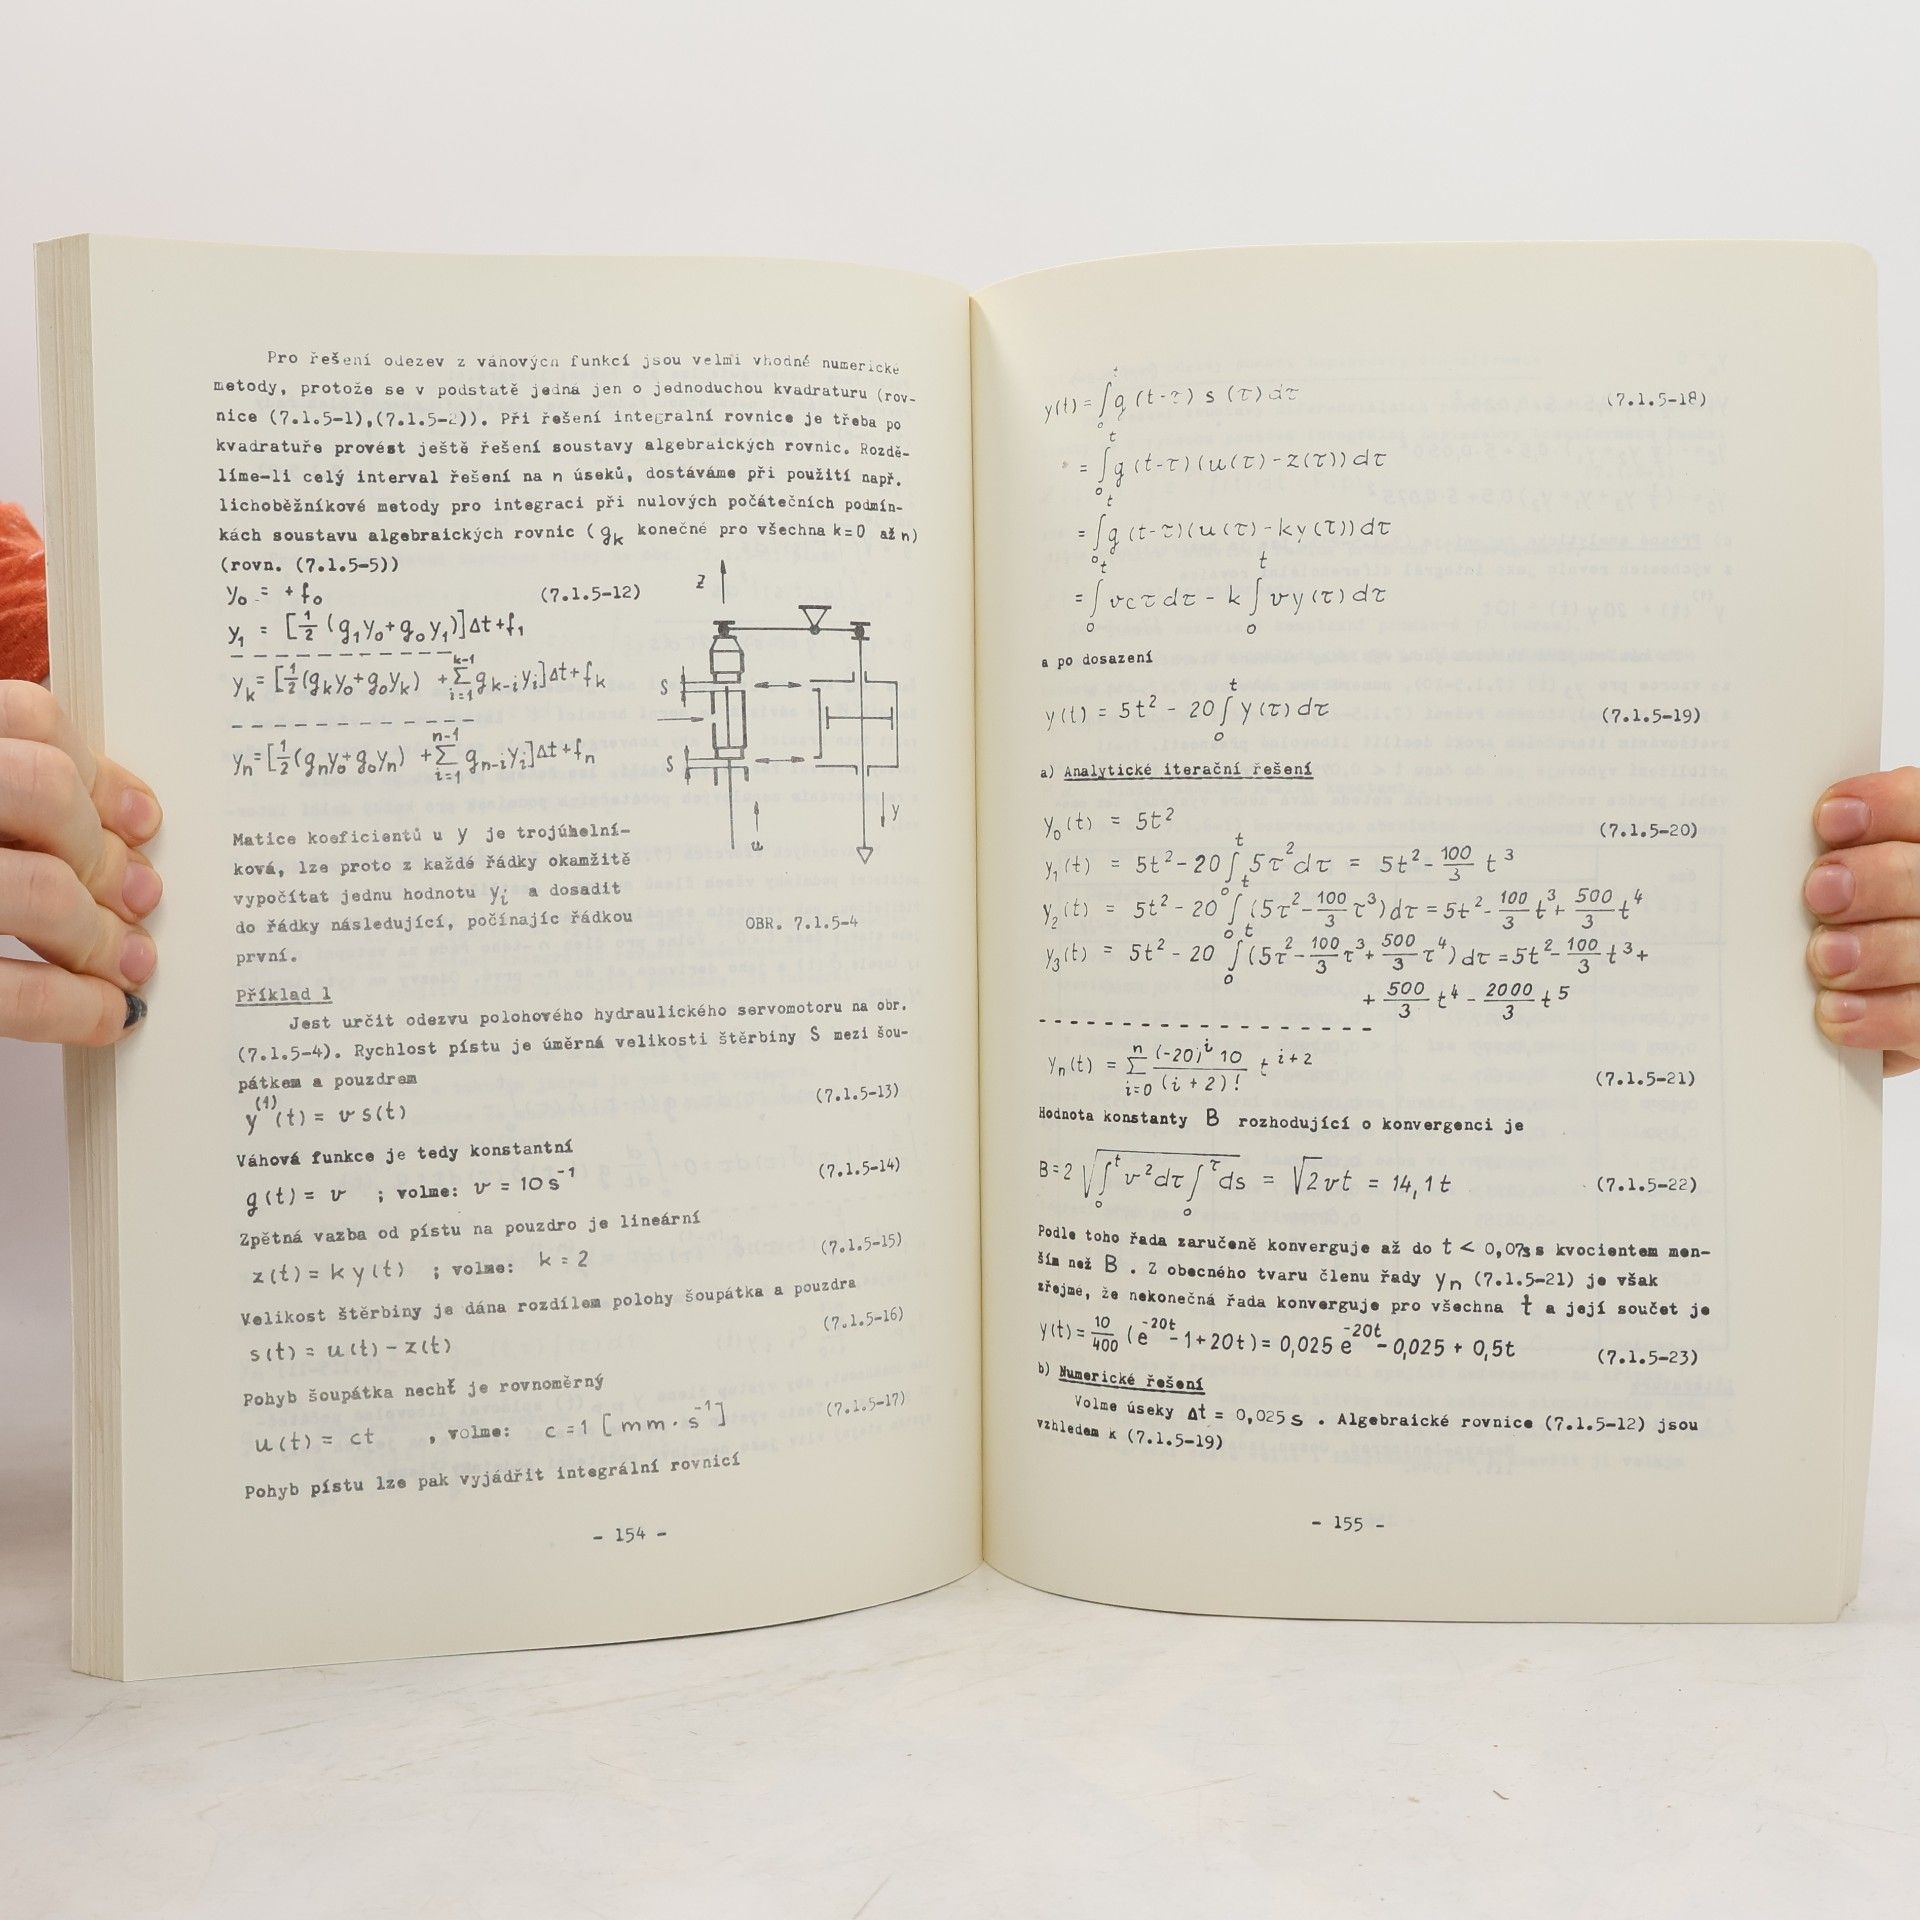 Pro řešení odezev z váhových funkcí jsou velmi vhodné numerické
metody, protože se v podstatě jedná jen o jednoduchou kvadraturu (rov-
nice (7.1.5-1),(7.1.5-2)). Při řešení integralní rovnice je třeba po
kvadratuře provést ještě řešení soustavy algebraických rovnic. Rozdě-
líme-li celý interval řešení na n úseků, dostáváme při použití např.
lichoběžníkové metody pro integraci při nulových počátečních podmín-
kách soustavu algebraických rovnic (g_k konečné pro všechna k=0 až n)
(rovn. (7.1.5-5))
y_0 = + f_0 (7.1.5-12)
y_1 = [1/2 (g_1 y_0 + g_0 y_1)]Δt + f_1
y_k = [1/2 (g_k y_0 + g_0 y_k) + Σ_{i=1}^{k-1} g_{k-i} y_i]Δt + f_k
y_n = [1/2 (g_n y_0 + g_0 y_n) + Σ_{i=1}^{n-1} g_{n-i} y_i]Δt + f_n
z
S
S
u
y
Matice koeficientů u y je trojúhelní-
ková, lze proto z každé řádky okamžitě
vypočítat jednu hodnotu y_i a dosadit
do řádky následující, počínajíc řádkou
první.
OBR. 7.1.5-4
Příklad 1
Jest určit odezvu polohového hydraulického servomotoru na obr.
(7.1.5-4). Rychlost pístu je úměrná velikosti štěrbiny S mezi šou-
pátkem a pouzdrem
y^(1)(t) = v s(t) (7.1.5-13)
Váhová funkce je tedy konstantní
g(t) = v ; volme: v = 10 s^-1 (7.1.5-14)
Zpětná vazba od pístu na pouzdro je lineární
z(t) = k y(t) ; volme: k = 2 (7.1.5-15)
Velikost štěrbiny je dána rozdílem polohy šoupátka a pouzdra
s(t) = u(t) - z(t) (7.1.5-16)
Pohyb šoupátka nechť je rovnoměrný
u(t) = ct , volme: c = 1 [mm·s^-1] (7.1.5-17)
Pohyb pístu lze pak vyjádřit integrální rovnicí
- 154 -
y(t) = ∫_0^t g(t-τ) s(τ) dτ (7.1.5-18)
= ∫_0^t g(t-τ)(u(τ)-z(τ)) dτ
= ∫_0^t g(t-τ)(u(τ)-ky(τ)) dτ
= ∫_0^t vcτ dτ - k ∫_0^t vy(τ) dτ
a po dosazení
y(t) = 5t² - 20 ∫_0^t y(τ) dτ (7.1.5-19)
a) Analytické iterační řešení
y_0(t) = 5t² (7.1.5-20)
y_1(t) = 5t² - 20 ∫_0^t 5τ² dτ = 5t² - 100/3 t³
y_2(t) = 5t² - 20 ∫_0^t (5τ² - 100/3 τ³) dτ = 5t² - 100/3 t³ + 500/3 t⁴
y_3(t) = 5t² - 20 ∫_0^t (5τ² - 100/3 τ³ + 500/3 τ⁴) dτ = 5t² - 100/3 t³ +
+ 500/3 t⁴ - 2000/3 t⁵
y_n(t) = Σ_{i=0}^{n} (-20)^i 10/(i+2)! t^{i+2} (7.1.5-21)
Hodnota konstanty B rozhodující o konvergenci je
B = 2 √(∫_0^t v² dτ ∫_0^τ ds) = √2 vt = 14,1 t (7.1.5-22)
Podle toho řada zaručeně konverguje až do t < 0,07s s kvocientem men-
ším než B . Z obecného tvaru členu řady y_n (7.1.5-21) je však
zřejmé, že nekonečná řada konverguje pro všechna t a její součet je
y(t) = 10/400 (e^-20t - 1 + 20t) = 0,025 e^-20t - 0,025 + 0,5t (7.1.5-23)
b) Numerické řešení
Volme úseky Δt = 0,025 s . Algebraické rovnice (7.1.5-12) jsou
vzhledem k (7.1.5-19)
- 155 -